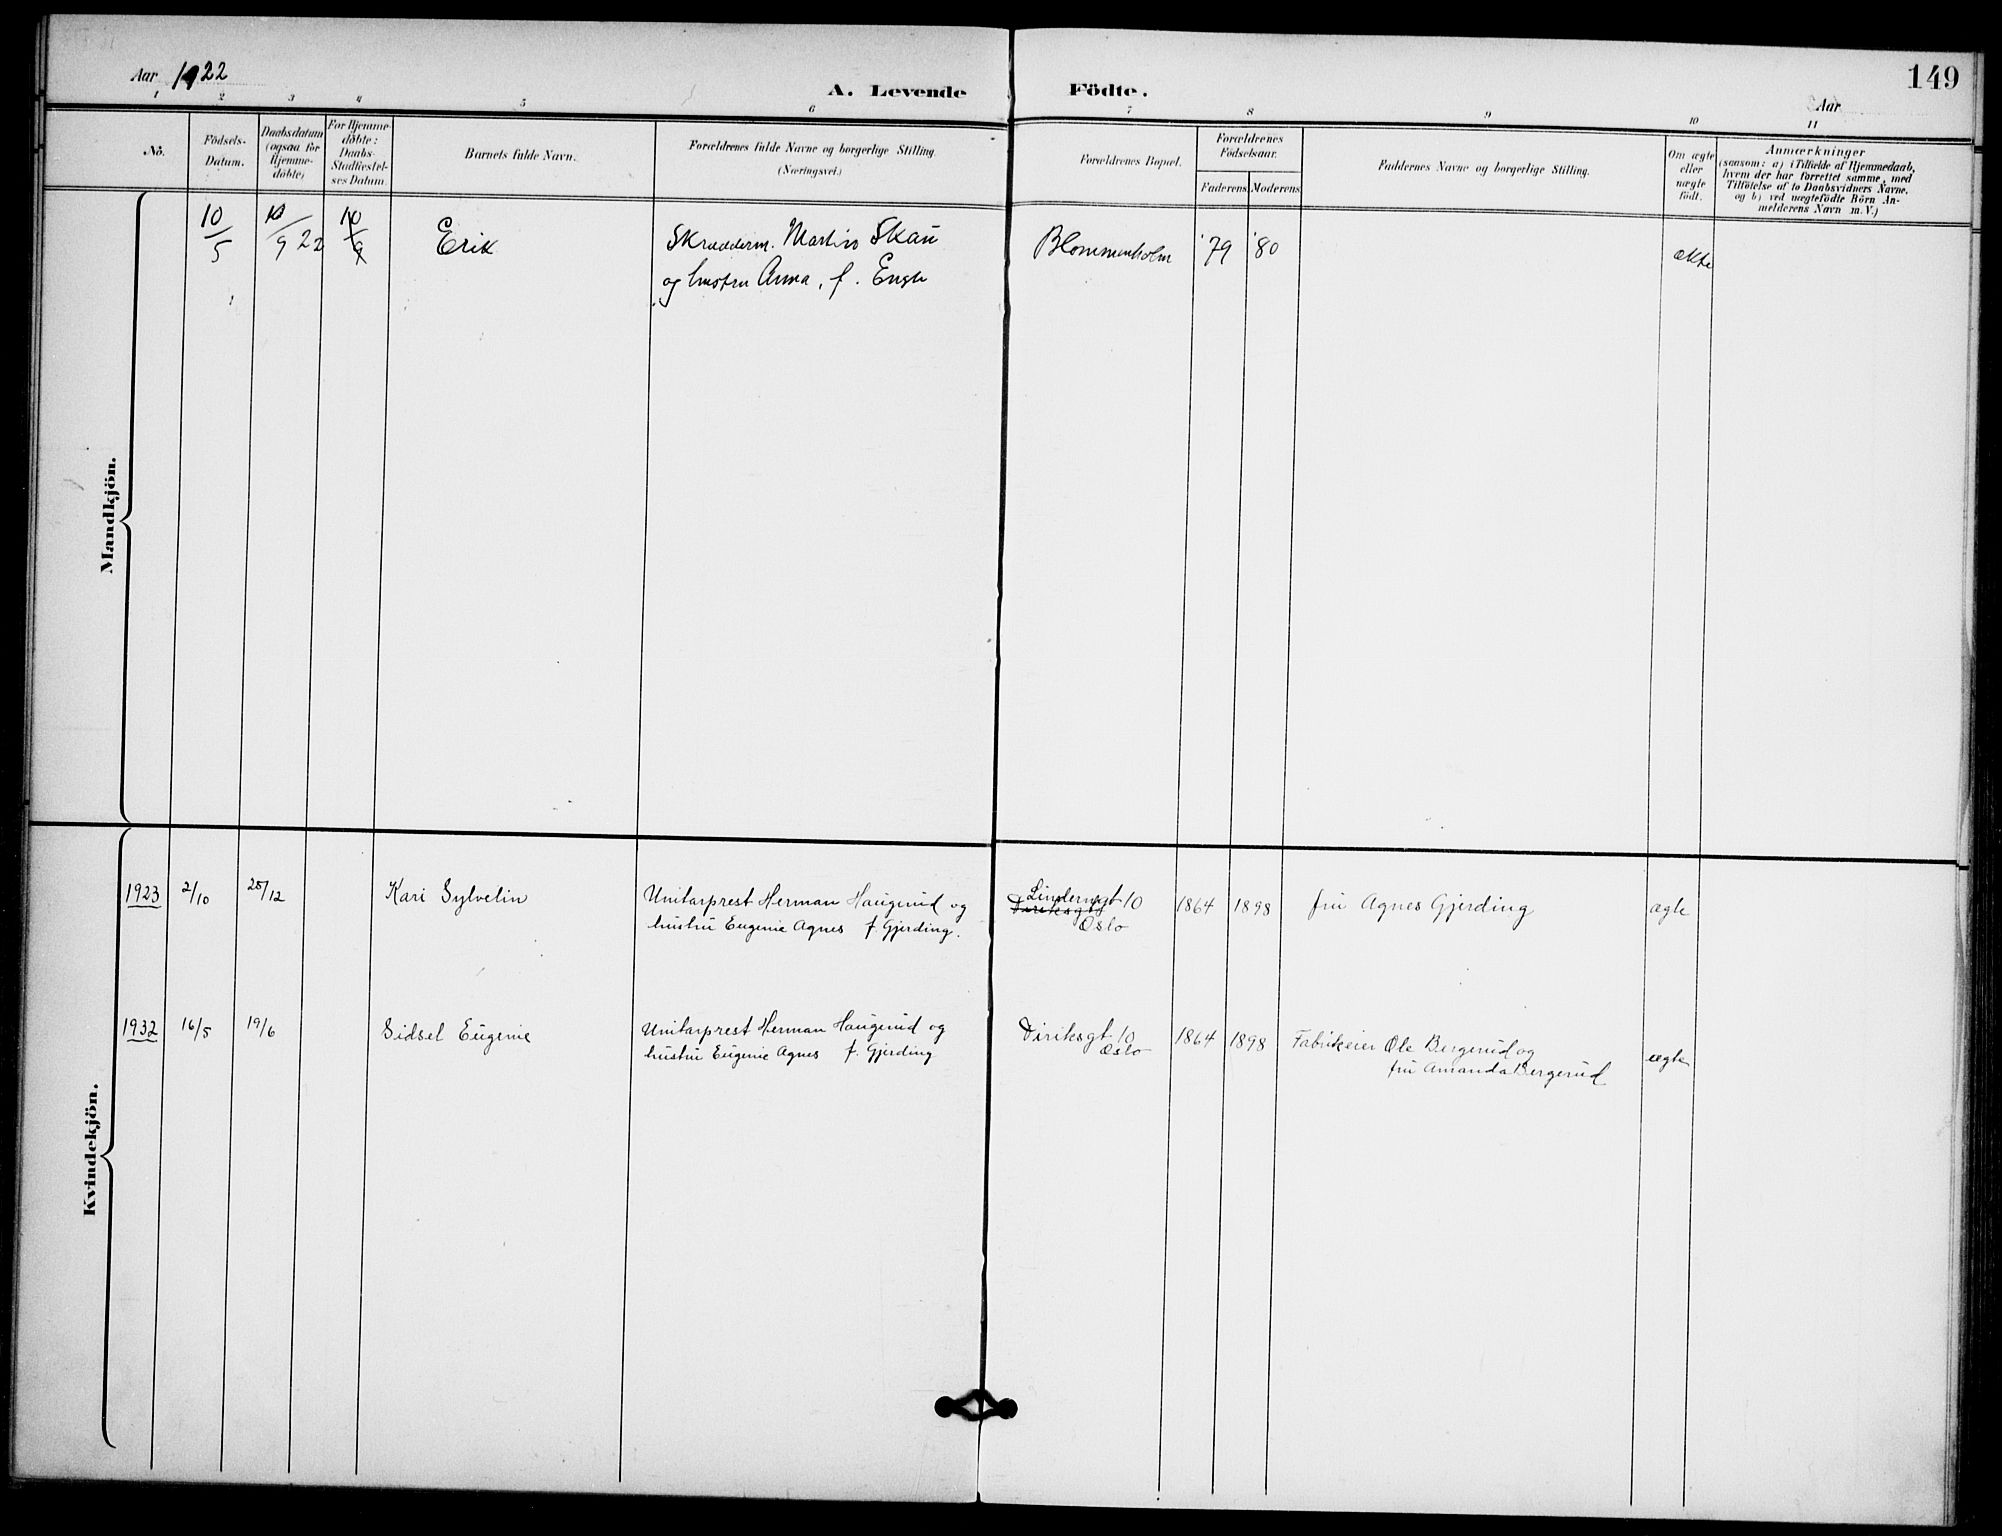 Aar 1922
A. Levende Födte.
149
Aar
1 2 3 4 5 6 7 8 9 10 11
No.
Födsels-
Datum.
Daabsdatum
(ogsaa for
Hjemme-
döbte)
For Hjemme-
döbte:
Daabs-
Stadfæstel-
ses Datum.
Barnets fulde Navn.
Forældrenes fulde Navne og borgerlige Stilling
(Næringsvei.)
Forældrenes Bopæl.
Forældrenes
Födselsaar.
Faderens Moderens
Faddernes Navne og borgerlige Stilling.
Om ægte
eller
uægte
födt.
Anmærkninger
(saasom: a) i Tilfælde af Hjemmedaab,
hvem der har forrettet samme, med
Tilföielse af to Daabsvidners Navne.
og b) ved uægtefödte Börn An-
melderens Navn m. V.)
Mandkjön.
10/5 10/9 22 10/9 Erik Skrædderm. Martin Skau
og hustru Anna, f. Engh
Blommenholm '79 '80 ekte
Kvindekjön.
1923 2/10 25/12 Kari Sylvelin Unitarprest Herman Haugerud og
hustru Eugenie Agnes f. Gjerding.
Linderngt 10
Diriksgt
Oslo
1864 1898 fru Agnes Gjerding ægte
1932 16/5 19/6 Sidsel Eugenie Unitarprest Herman Haugerud og
hustru Eugenie Agnes f. Gjerding
Diriksgt 10
Oslo
1864 1898 Fabrikeier Ole Bergerud og
fru Amanda Bergerud
ægte